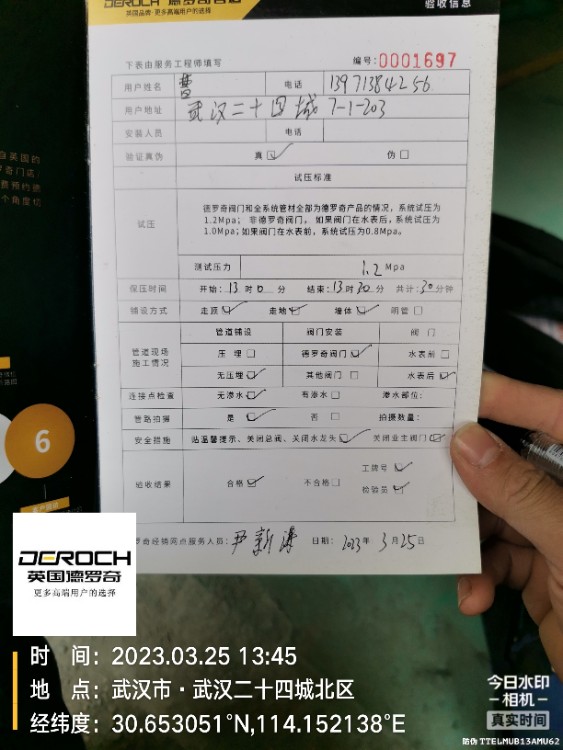 DEROCH 德罗奇
英国品牌·更多高端用户的选择
验收信息
下表由服务工程师填写 编号:0001697
用户姓名 曹 电话 13971384256
用户地址 武汉二十四城 7-1-203
安装人员 电话
验证真伪 真☑ 伪□
试压标准
试压
德罗奇阀门和全系统管材全部为德罗奇产品的情况，系统试压为
1.2Mpa； 非德罗奇阀门。如果阀门在水表后，系统试压为
1.0Mpa；如果阀门在水表前，系统试压为0.8Mpa。
测试压力 1.2 Mpa
保压时间 开始：13时0分 结束：13时30分 共计：30分钟
铺设方式 走顶☑ 走地☑ 墙体☑ 明管□
管道现场
施工情况
管道铺设 阀门安装 阀 门
压埋□ 德罗奇阀门☑ 水表前□
无压埋☑ 其他阀门□ 水表后☑
连接点检查 无渗水☑ 有渗水□ 渗水部位：
管路拍摄 是☑ 否□ 拍摄数量：
安全措施 贴温馨提示、关闭总阀、关闭水龙头☑ 关闭业主阀门☑
验收结果 合格☑ 不合格□
工牌号☑
检验员☑
罗奇经销网点服务人员： 日期：2023年3月25日
自英国的
奇门店
费预约德
个角度位
6
DEROCH
英国德罗奇
更多高端用户的选择
时 间：2023.03.25 13:45
地 点：武汉市·武汉二十四城北区
经纬度：30.653051°N,114.152138°E
今日水印
-相机-
真实时间
防伪 TTELMUB13AMU62